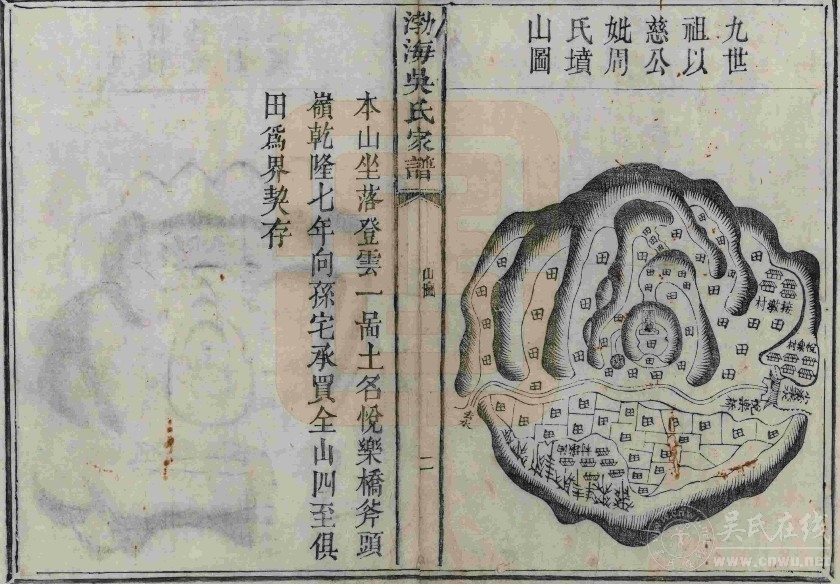 九世
祖以
慈公
妣周
氏墳
山圖
渤海吳氏家譜
山圖
二
本山坐落登雲一啚土名悅樂橋斧頭
嶺乾隆七年向孫宅承買全山四至俱
田爲界契存
吳氏在线
www.cnwu.net